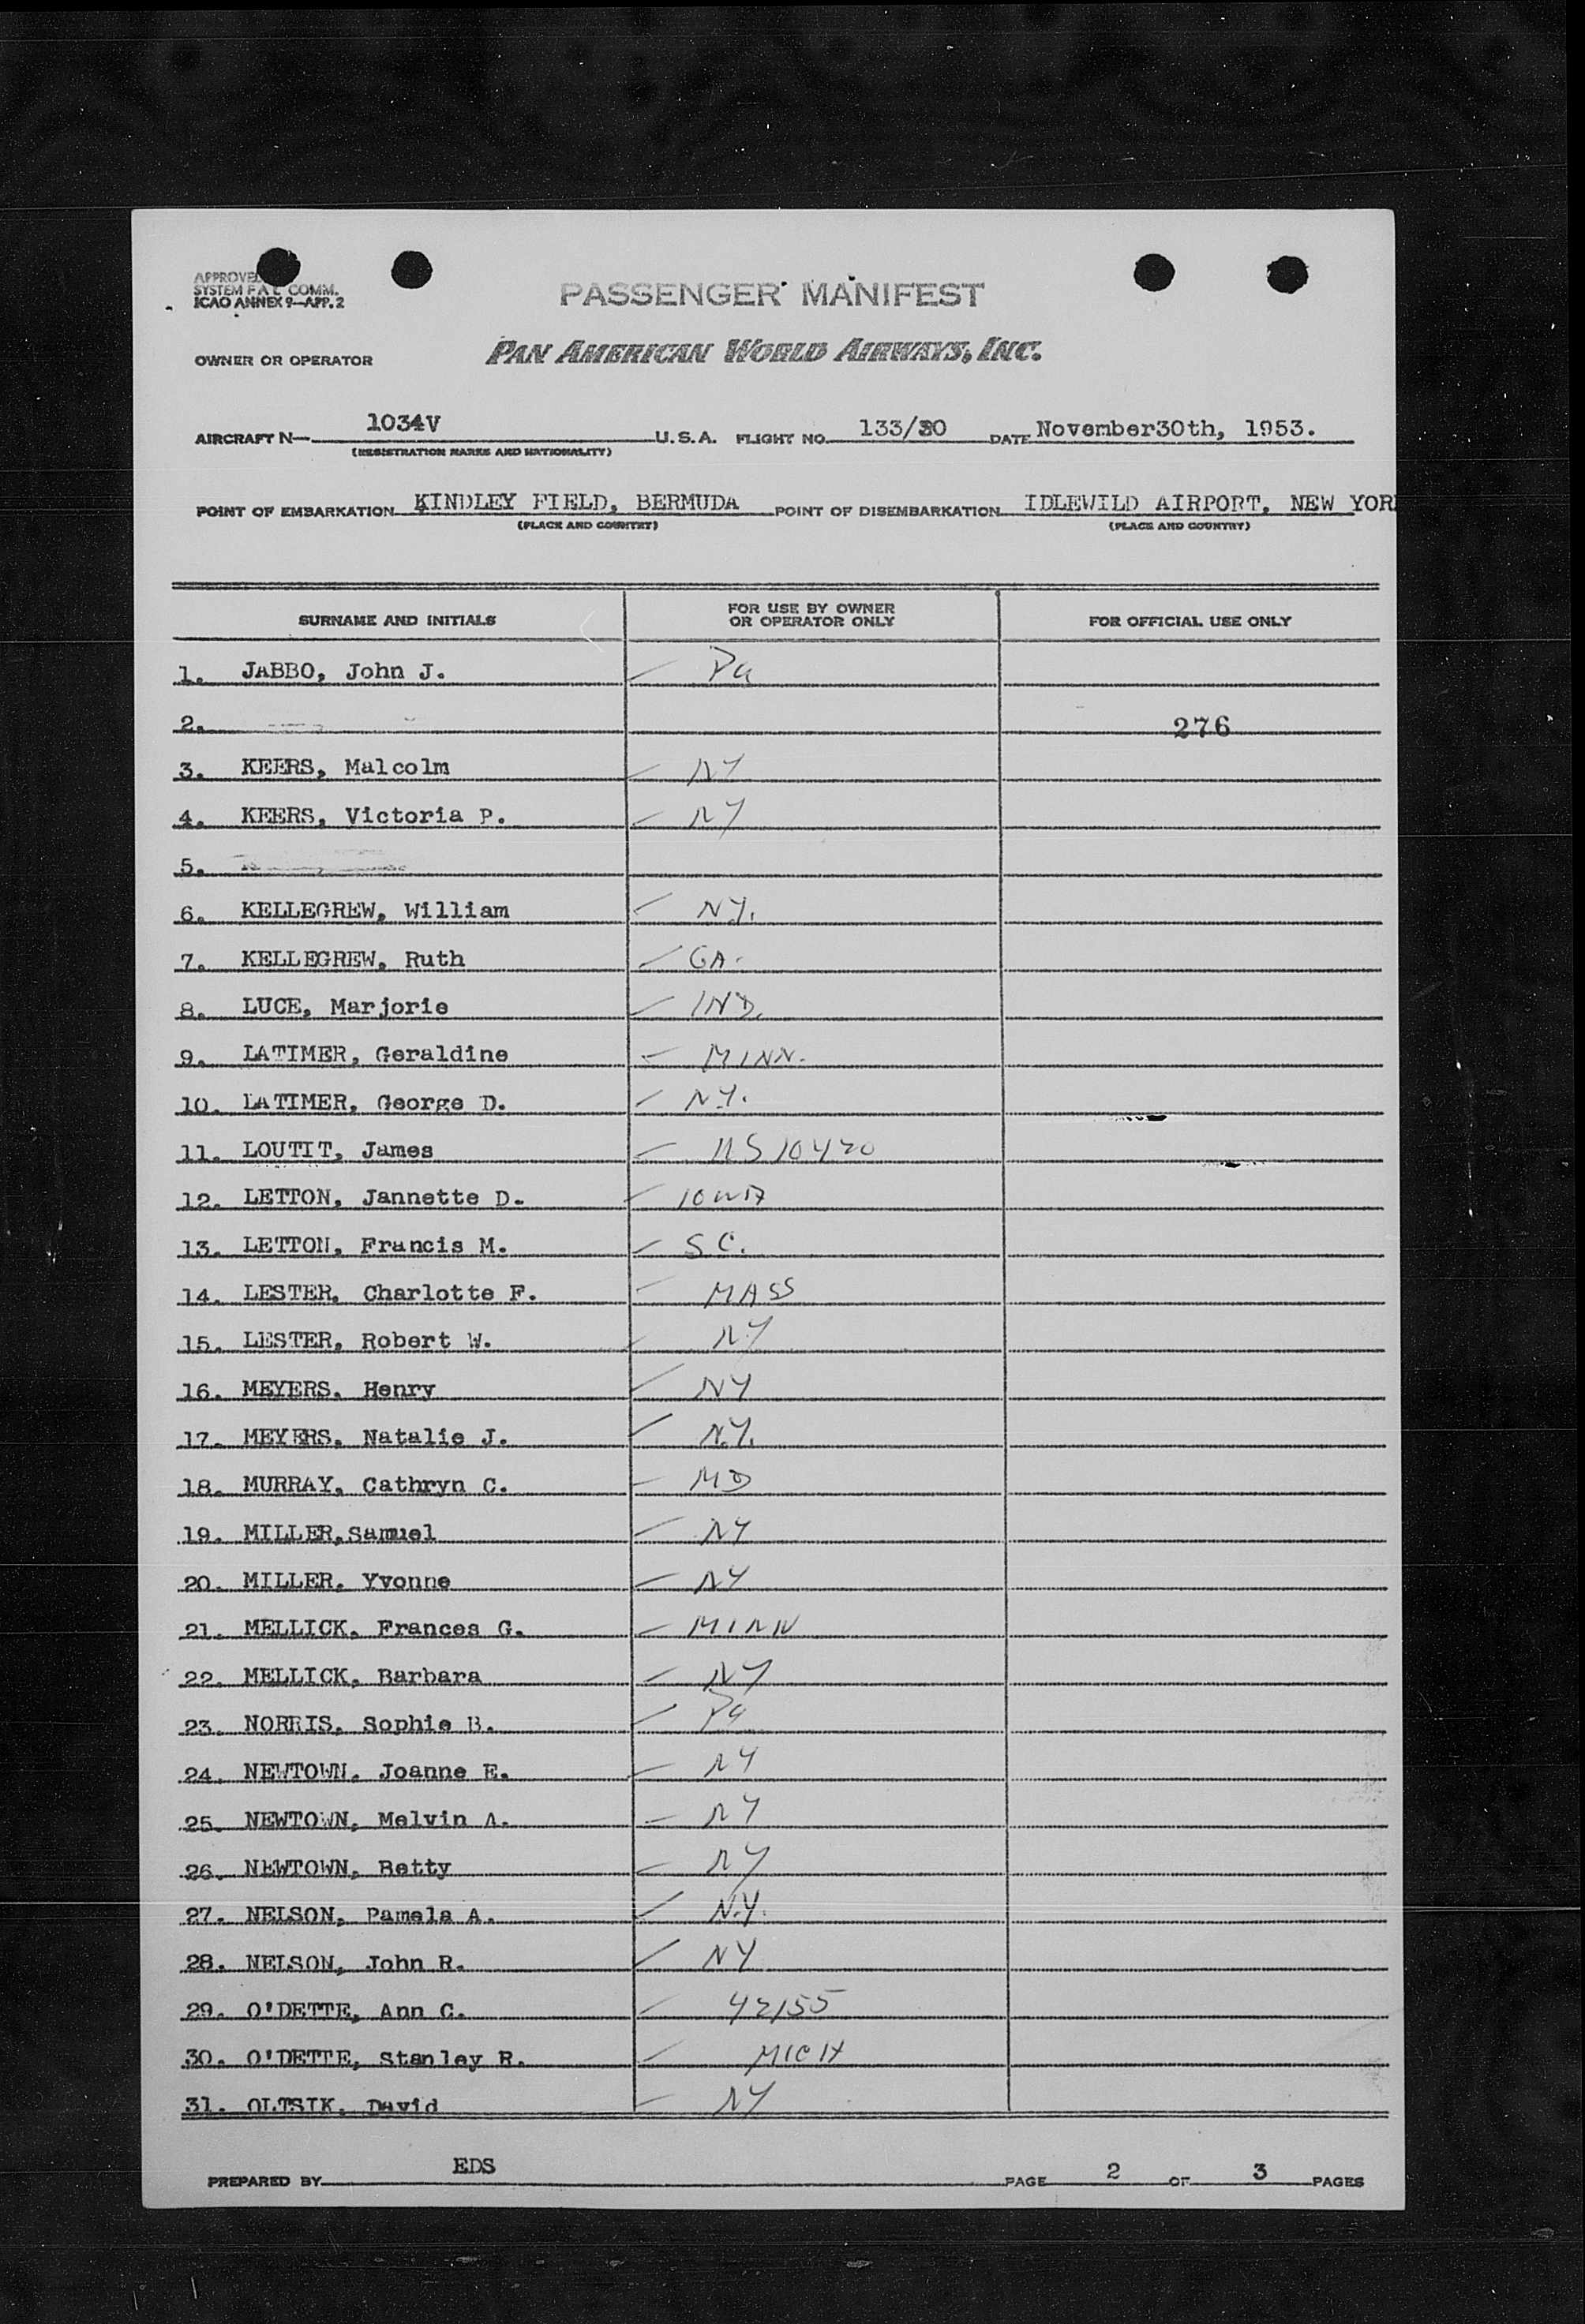 APPROVED
SYSTEM F A L COMM.
ICAO ANNEX 9—APP. 2
PASSENGER MANIFEST
OWNER OR OPERATOR PAN AMERICAN WORLD AIRWAYS, INC.
AIRCRAFT N— 1034V U.S.A. FLIGHT NO. 133/30 DATE November30th, 1953.
(REGISTRATION MARKS AND NATIONALITY)
POINT OF EMBARKATION KINDLEY FIELD, BERMUDA POINT OF DISEMBARKATION IDLEWILD AIRPORT, NEW YOR
(PLACE AND COUNTRY) (PLACE AND COUNTRY)
SURNAME AND INITIALS FOR USE BY OWNER OR OPERATOR ONLY FOR OFFICIAL USE ONLY
1. JABBO, John J. Pa
2. 276
3. KEERS, Malcolm NY
4. KEERS, Victoria P. NY
5.
6. KELLEGREW, William N.Y.
7. KELLEGREW, Ruth GA.
8. LUCE, Marjorie IND.
9. LATIMER, Geraldine MINN.
10. LATIMER, George D. N.Y.
11. LOUTIT, James
12. LETTON, Jannette D. IOWA
13. LETTON, Francis M. S.C.
14. LESTER, Charlotte F. MASS
15. LESTER, Robert W. NY
16. MEYERS, Henry NY
17. MEYERS, Natalie J. N.Y.
18. MURRAY, Cathryn C. MD
19. MILLER,Samuel NY
20. MILLER, Yvonne NY
21. MELLICK, Frances G. MINN
22. MELLICK, Barbara NY
23. NORRIS, Sophie B. Pa
24. NEWTOWN, Joanne E. NY
25. NEWTOWN, Melvin A. NY
26. NEWTOWN, Betty NY
27. NELSON, Pamela A. N.Y.
28. NELSON, John R. NY
29. O'DETTE, Ann C. 42155
30. O'DETTE, Stanley R. MICH
31. OLTSIK, David NY
PREPARED BY EDS PAGE 2 OF 3 PAGES